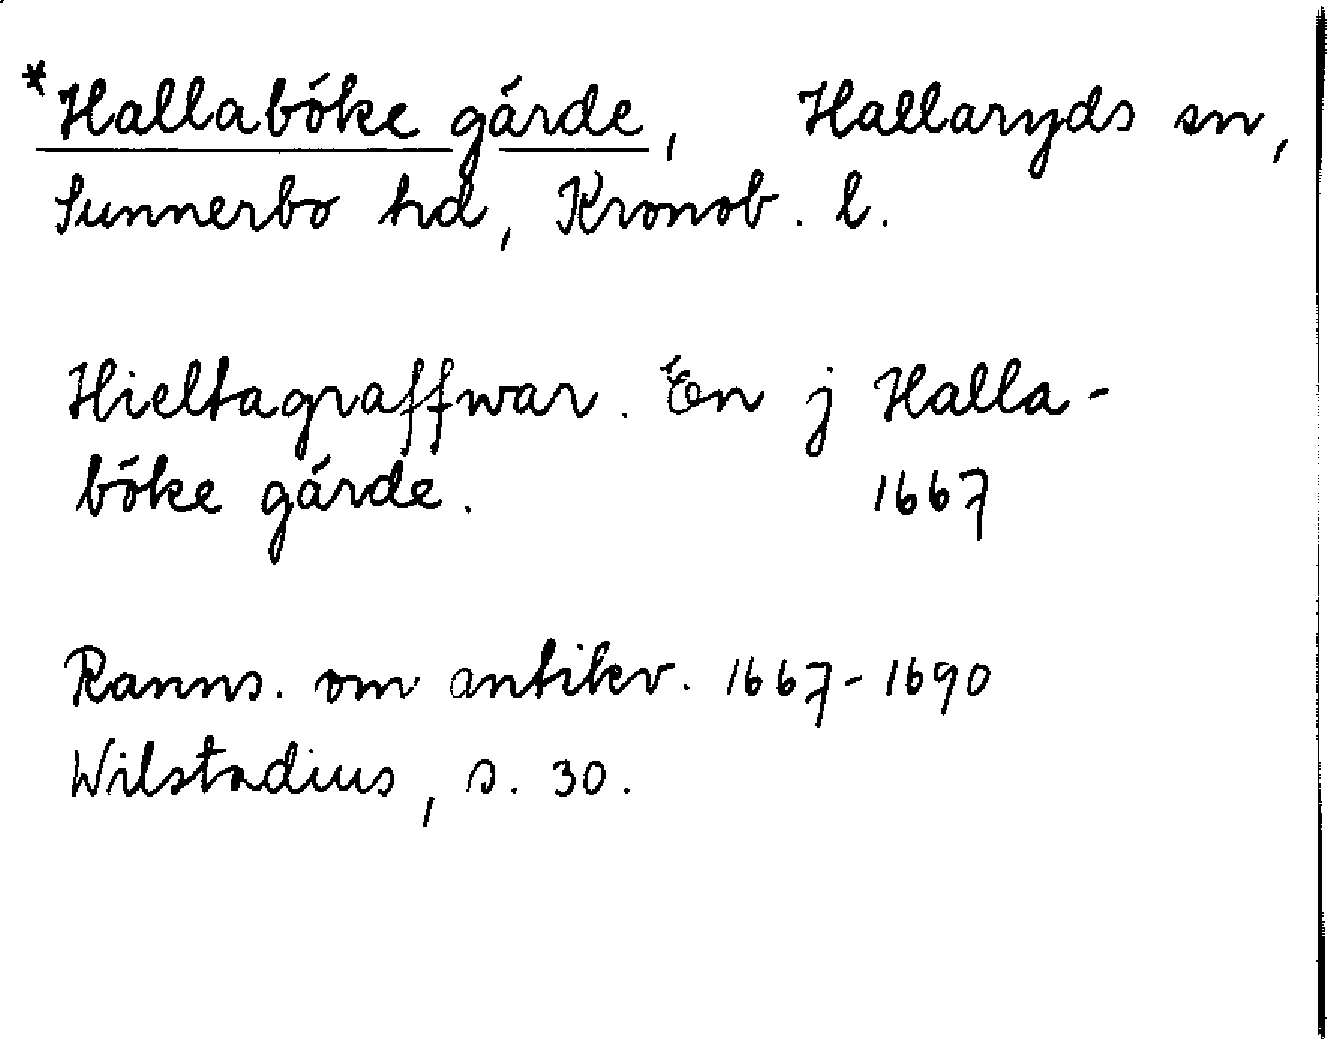 *Hallaböke gärde, Hallaryds sn,
Sunnerbo hd, Kronob. l.
Hieltagraffwar. En j Halla-
böke gärde. 1667
Ranns. om antikv. 1667-1690
Wilstadius, s. 30.